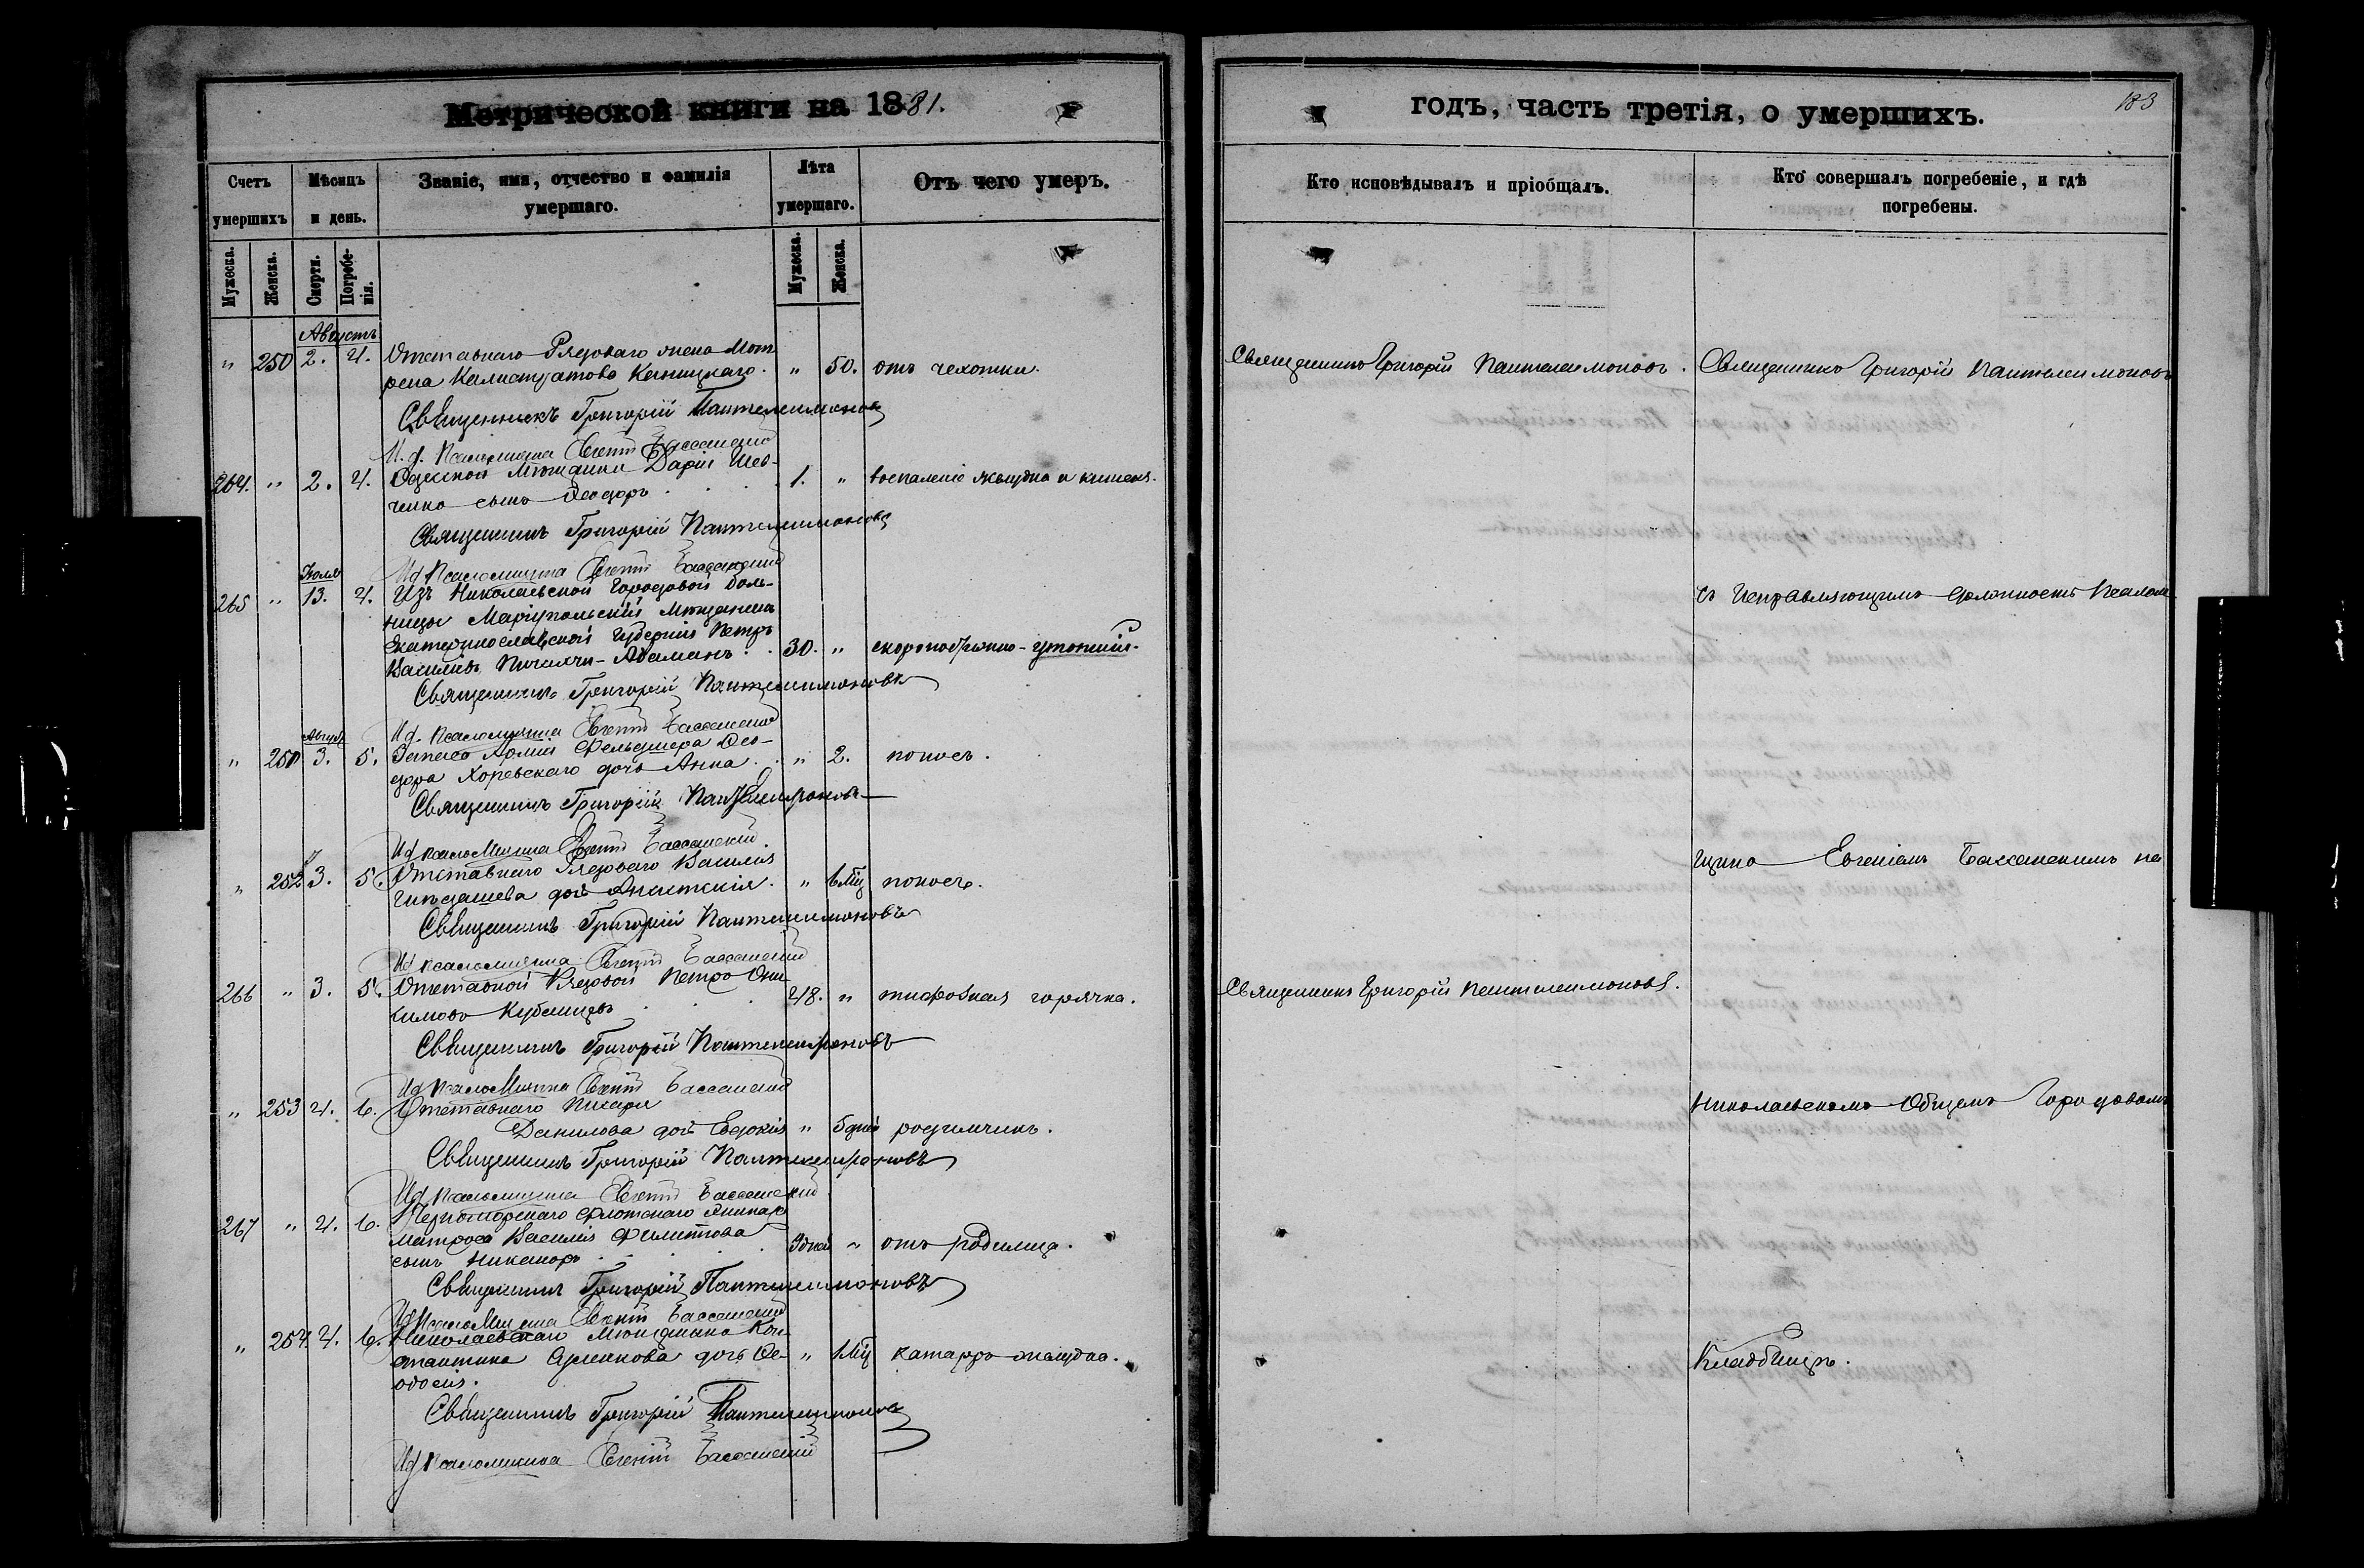 Метрической книги на 1881.
Счетъ умершихъ
Мѣсяцъ и день.
Званіе, имя, отчество и фамилія умершаго.
Лѣта умершаго.
Отъ чего умеръ.
Мужеска. Женска. Смерти. Погребенія. Мужеска. Женска.
Августъ
" 250 2. 4. Отставнаго Рядоваго жена Мот
рена Калистратова " 50. отъ чахотки.
Священникъ Григорій Пантелеимоновъ
И. д. Псаломщика Евгеній Бассанскій
264. " 2. 4. Одесской Мѣщанки Даріи Шев-
ченко сынъ Ѳеодоръ 1. " воспаленіе желудка и кишекъ.
Священникъ Григорій Пантелеимоновъ
Ид Псаломщика Евгеній Бассанскій
Іюля
265 " 13. 4. Изъ Николаевской Городовой боль-
ницы Маріупольскій Мѣщанинъ
Екатеринославской Губерніи Петръ
Василіевъ 30. " скоропостижно-утонший.
Священникъ Григорій Пантелеимоновъ
Ид. Псаломщика Евгеній Бассанскій
Август
" 251 3. 5. Запаса Арміи Фельдшера Ѳео-
дора Хоревскаго дочь Анна. " 2. поносъ.
Священникъ Григорій Пантелеимоновъ
Ид псаломщика Евгеній Бассанскій
" 252 3. 5. Отставнаго Рядоваго Василія
дочь " поносъ.
Священникъ Григорій Пантелеимоновъ
Ид псаломщика Евгеній Бассанскій
266 " 3. 5. Отставной Рядовой Петръ Они
симовъ 48. " тифозная горячка.
Священникъ Григорій Пантелеимоновъ
Ид псаломщика Евгеній Бассанскій
" 253 4. 6. Отставнаго Писаря
Данилова дочь Евдокія " 5 дней родимчикъ.
Священникъ Григорій Пантелеимоновъ
Ид псаломщика Евгеній Бассанскій
267 " 4. 6. Черноморскаго флотскаго Экипажа
матроса Василія Филиппова
сынъ Никаноръ 9 дней " отъ родимца.
Священникъ Григорій Пантелеимоновъ
Ид Псаломщика Евгеній Бассанскій
" 254 4. 6. Николаевскаго Мѣщанина Кон-
стантина дочь Ѳе- " 1 Мцъ катарръ желудка.
одосія.
Священникъ Григорій Пантелеимоновъ
Ид псаломщика Евгеній Бассанскій
годъ, часть третія, о умершихъ.
183
Кто исповѣдывалъ и пріобщалъ.
Кто совершалъ погребеніе, и гдѣ погребены.
Священникъ Григорій Пантелеимоновъ. Священникъ Григорій Пантелеимоновъ
съ Исправляющимъ должность Псалом
щика Евгеніемъ Бассанскимъ на
Священникъ Григорій Пантелеимоновъ.
Николаевскомъ Общемъ Городовомъ
Кладбищѣ.